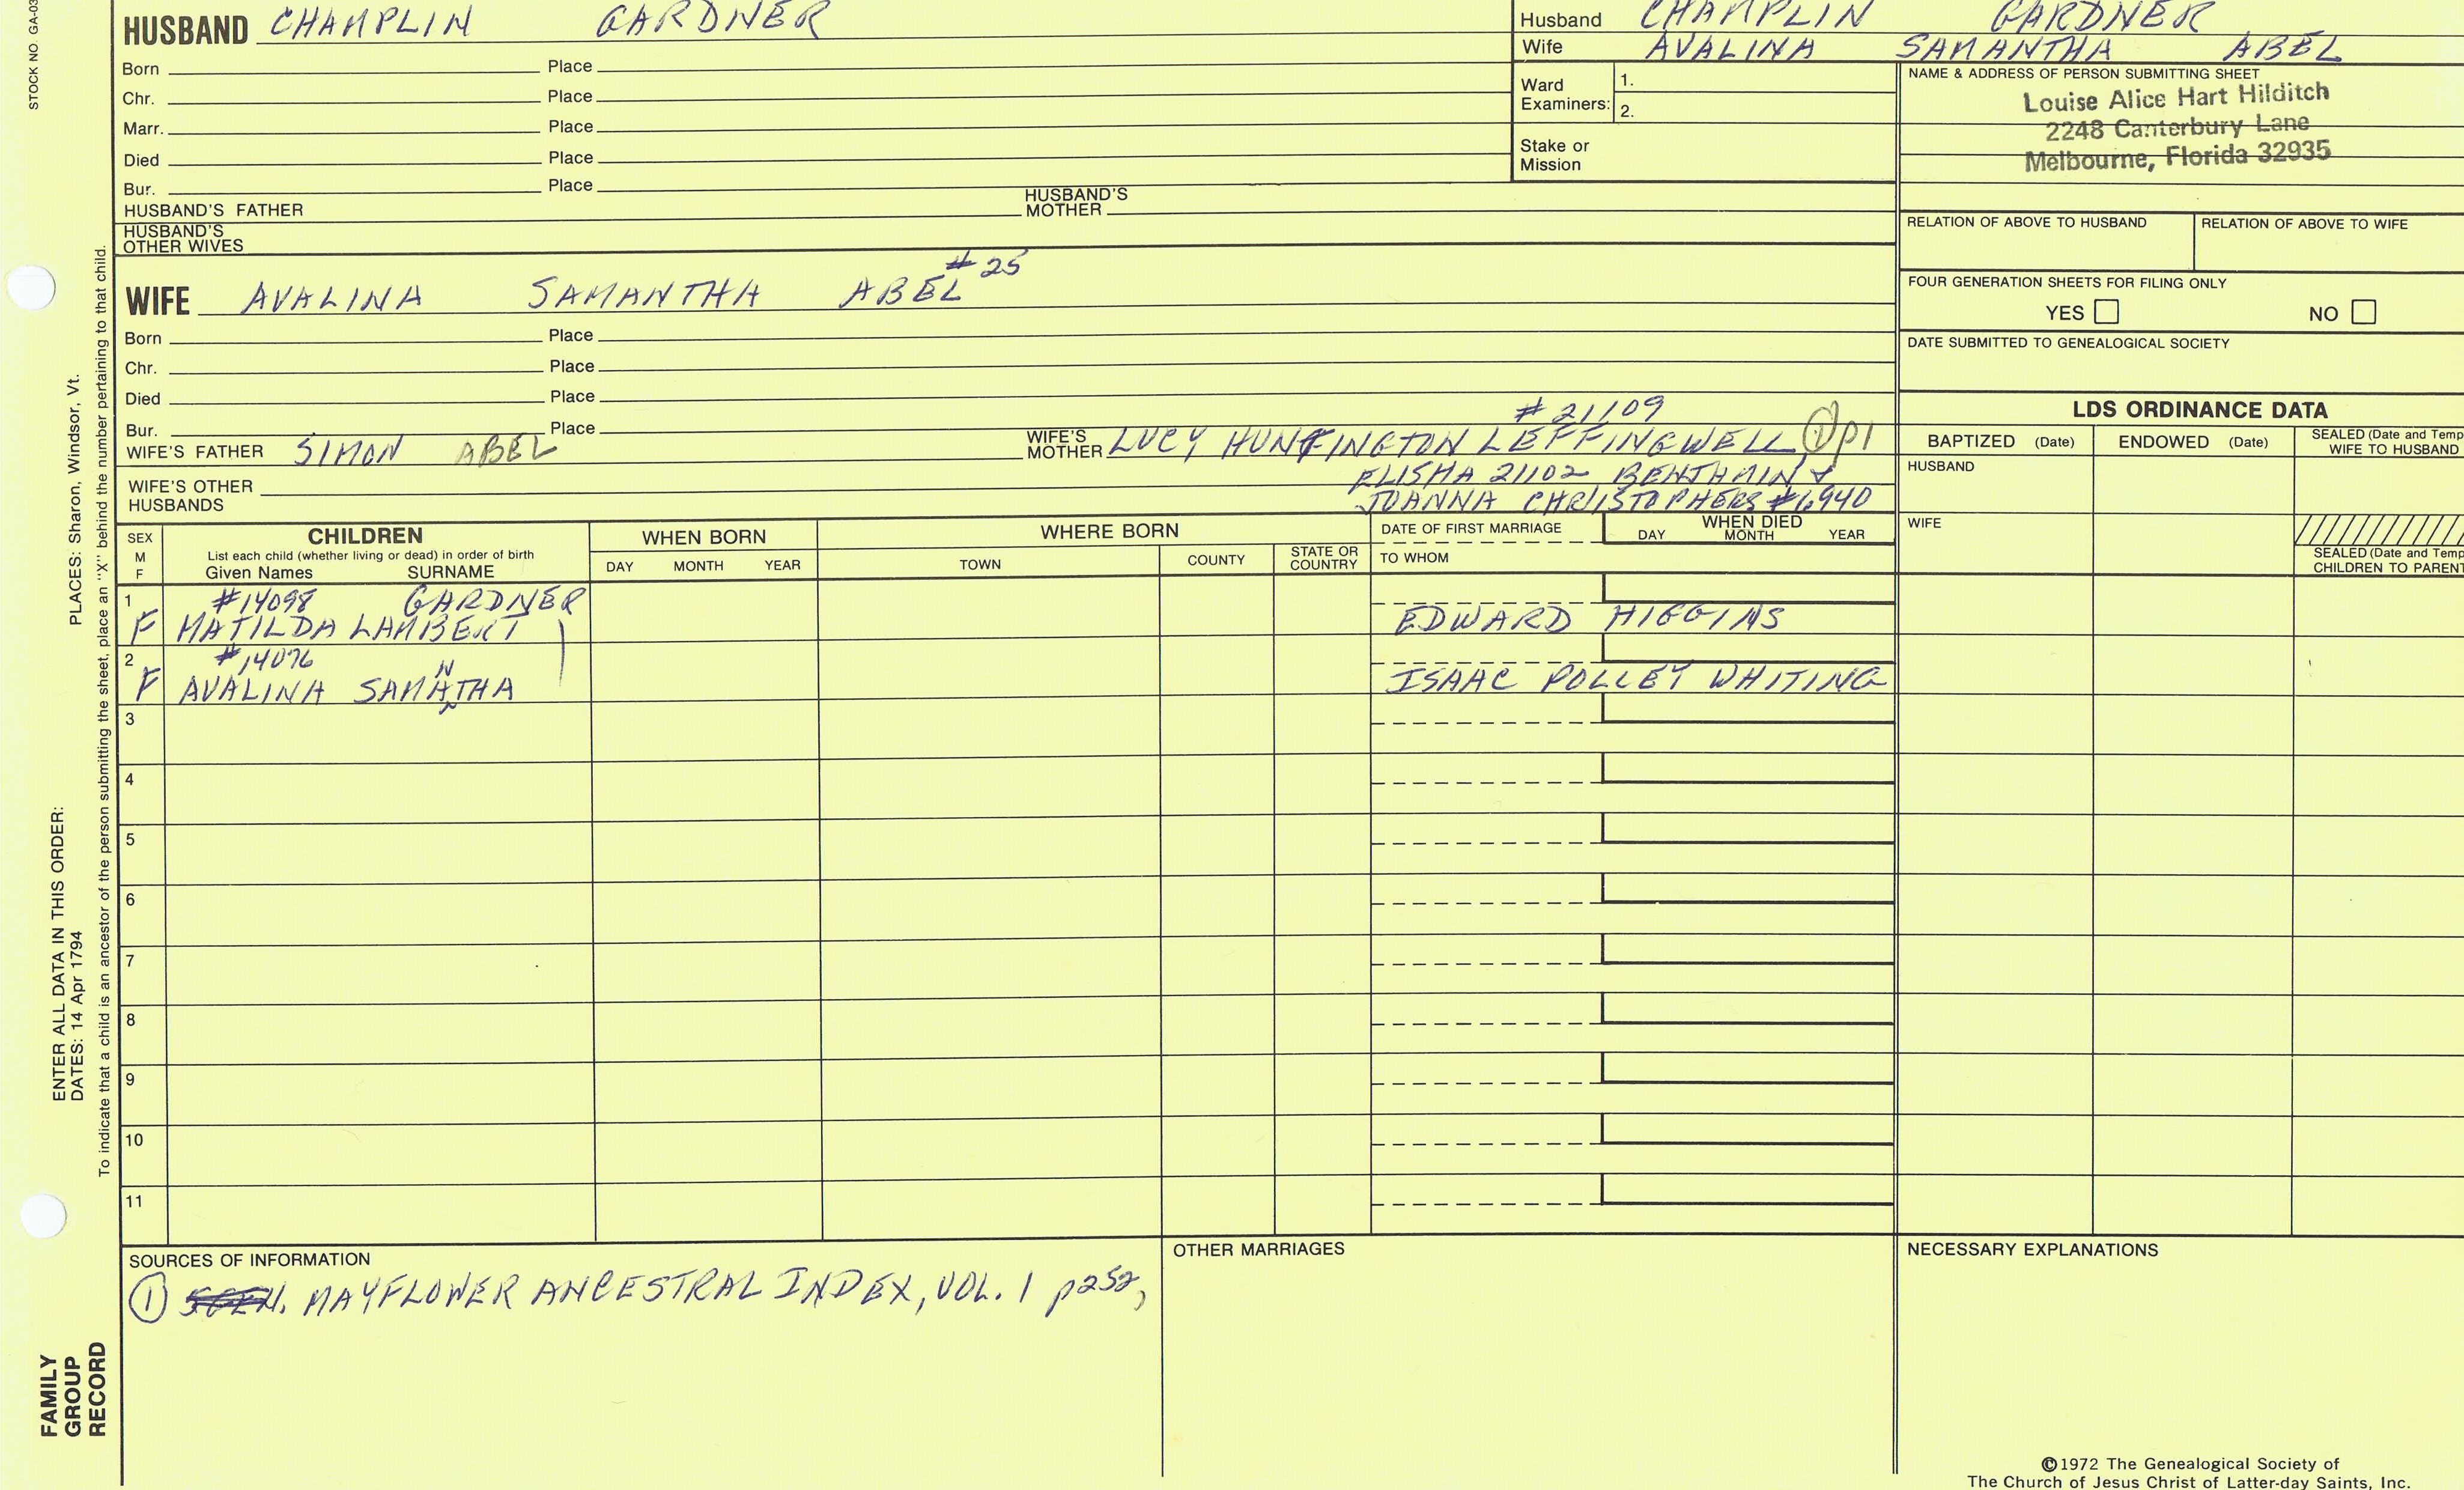 STOCK NO. GA-03
HUSBAND CHAMPLIN GARDNER
Born Place
Chr. Place
Marr. Place
Died Place
Bur. Place
HUSBAND'S FATHER HUSBAND'S MOTHER
HUSBAND'S OTHER WIVES
Husband CHAMPLIN GARDNER
Wife AVALINA SAMANTHA ABEL
Ward Examiners: 1.
2.
Stake or Mission
NAME & ADDRESS OF PERSON SUBMITTING SHEET
Louise Alice Hart Hilditch
2248 Canterbury Lane
Melbourne, Florida 32935
RELATION OF ABOVE TO HUSBAND RELATION OF ABOVE TO WIFE
FOUR GENERATION SHEETS FOR FILING ONLY
YES NO
DATE SUBMITTED TO GENEALOGICAL SOCIETY
#25
WIFE AVALINA SAMANTHA ABEL
Born Place
Chr. Place
Died Place
Bur. Place
#21109
WIFE'S FATHER SIMON ABEL WIFE'S MOTHER LUCY HUNTINGTON LEFFINGWELL ① p1
ELISHA 21102 BENJAMIN &
JOANNA CHRISTOPHERS #6940
WIFE'S OTHER HUSBANDS
LDS ORDINANCE DATA
BAPTIZED (Date) ENDOWED (Date) SEALED (Date and Temp
WIFE TO HUSBAND
HUSBAND
WIFE
SEALED (Date and Temp
CHILDREN TO PARENT
SEX M F CHILDREN
List each child (whether living or dead) in order of birth
Given Names SURNAME
WHEN BORN
DAY MONTH YEAR
WHERE BORN
TOWN COUNTY STATE OR COUNTRY
DATE OF FIRST MARRIAGE
TO WHOM
WHEN DIED
DAY MONTH YEAR
1 #14098 GARDNER
F MATILDA LAMBERT EDWARD HIGGINS
2 #14096
F AVALINA SAMANTHA ISAAC POLLEY WHITING
3
4
5
6
7
8
9
10
11
SOURCES OF INFORMATION
① MAYFLOWER ANCESTRAL INDEX, VOL. 1 p252,
OTHER MARRIAGES
NECESSARY EXPLANATIONS
©1972 The Genealogical Society of
The Church of Jesus Christ of Latter-day Saints, Inc.
ENTER ALL DATA IN THIS ORDER:
DATES: 14 Apr 1794 PLACES: Sharon, Windsor, Vt.
To indicate that a child is an ancestor of the person submitting the sheet, place an "X" behind the number pertaining to that child.
FAMILY
GROUP
RECORD